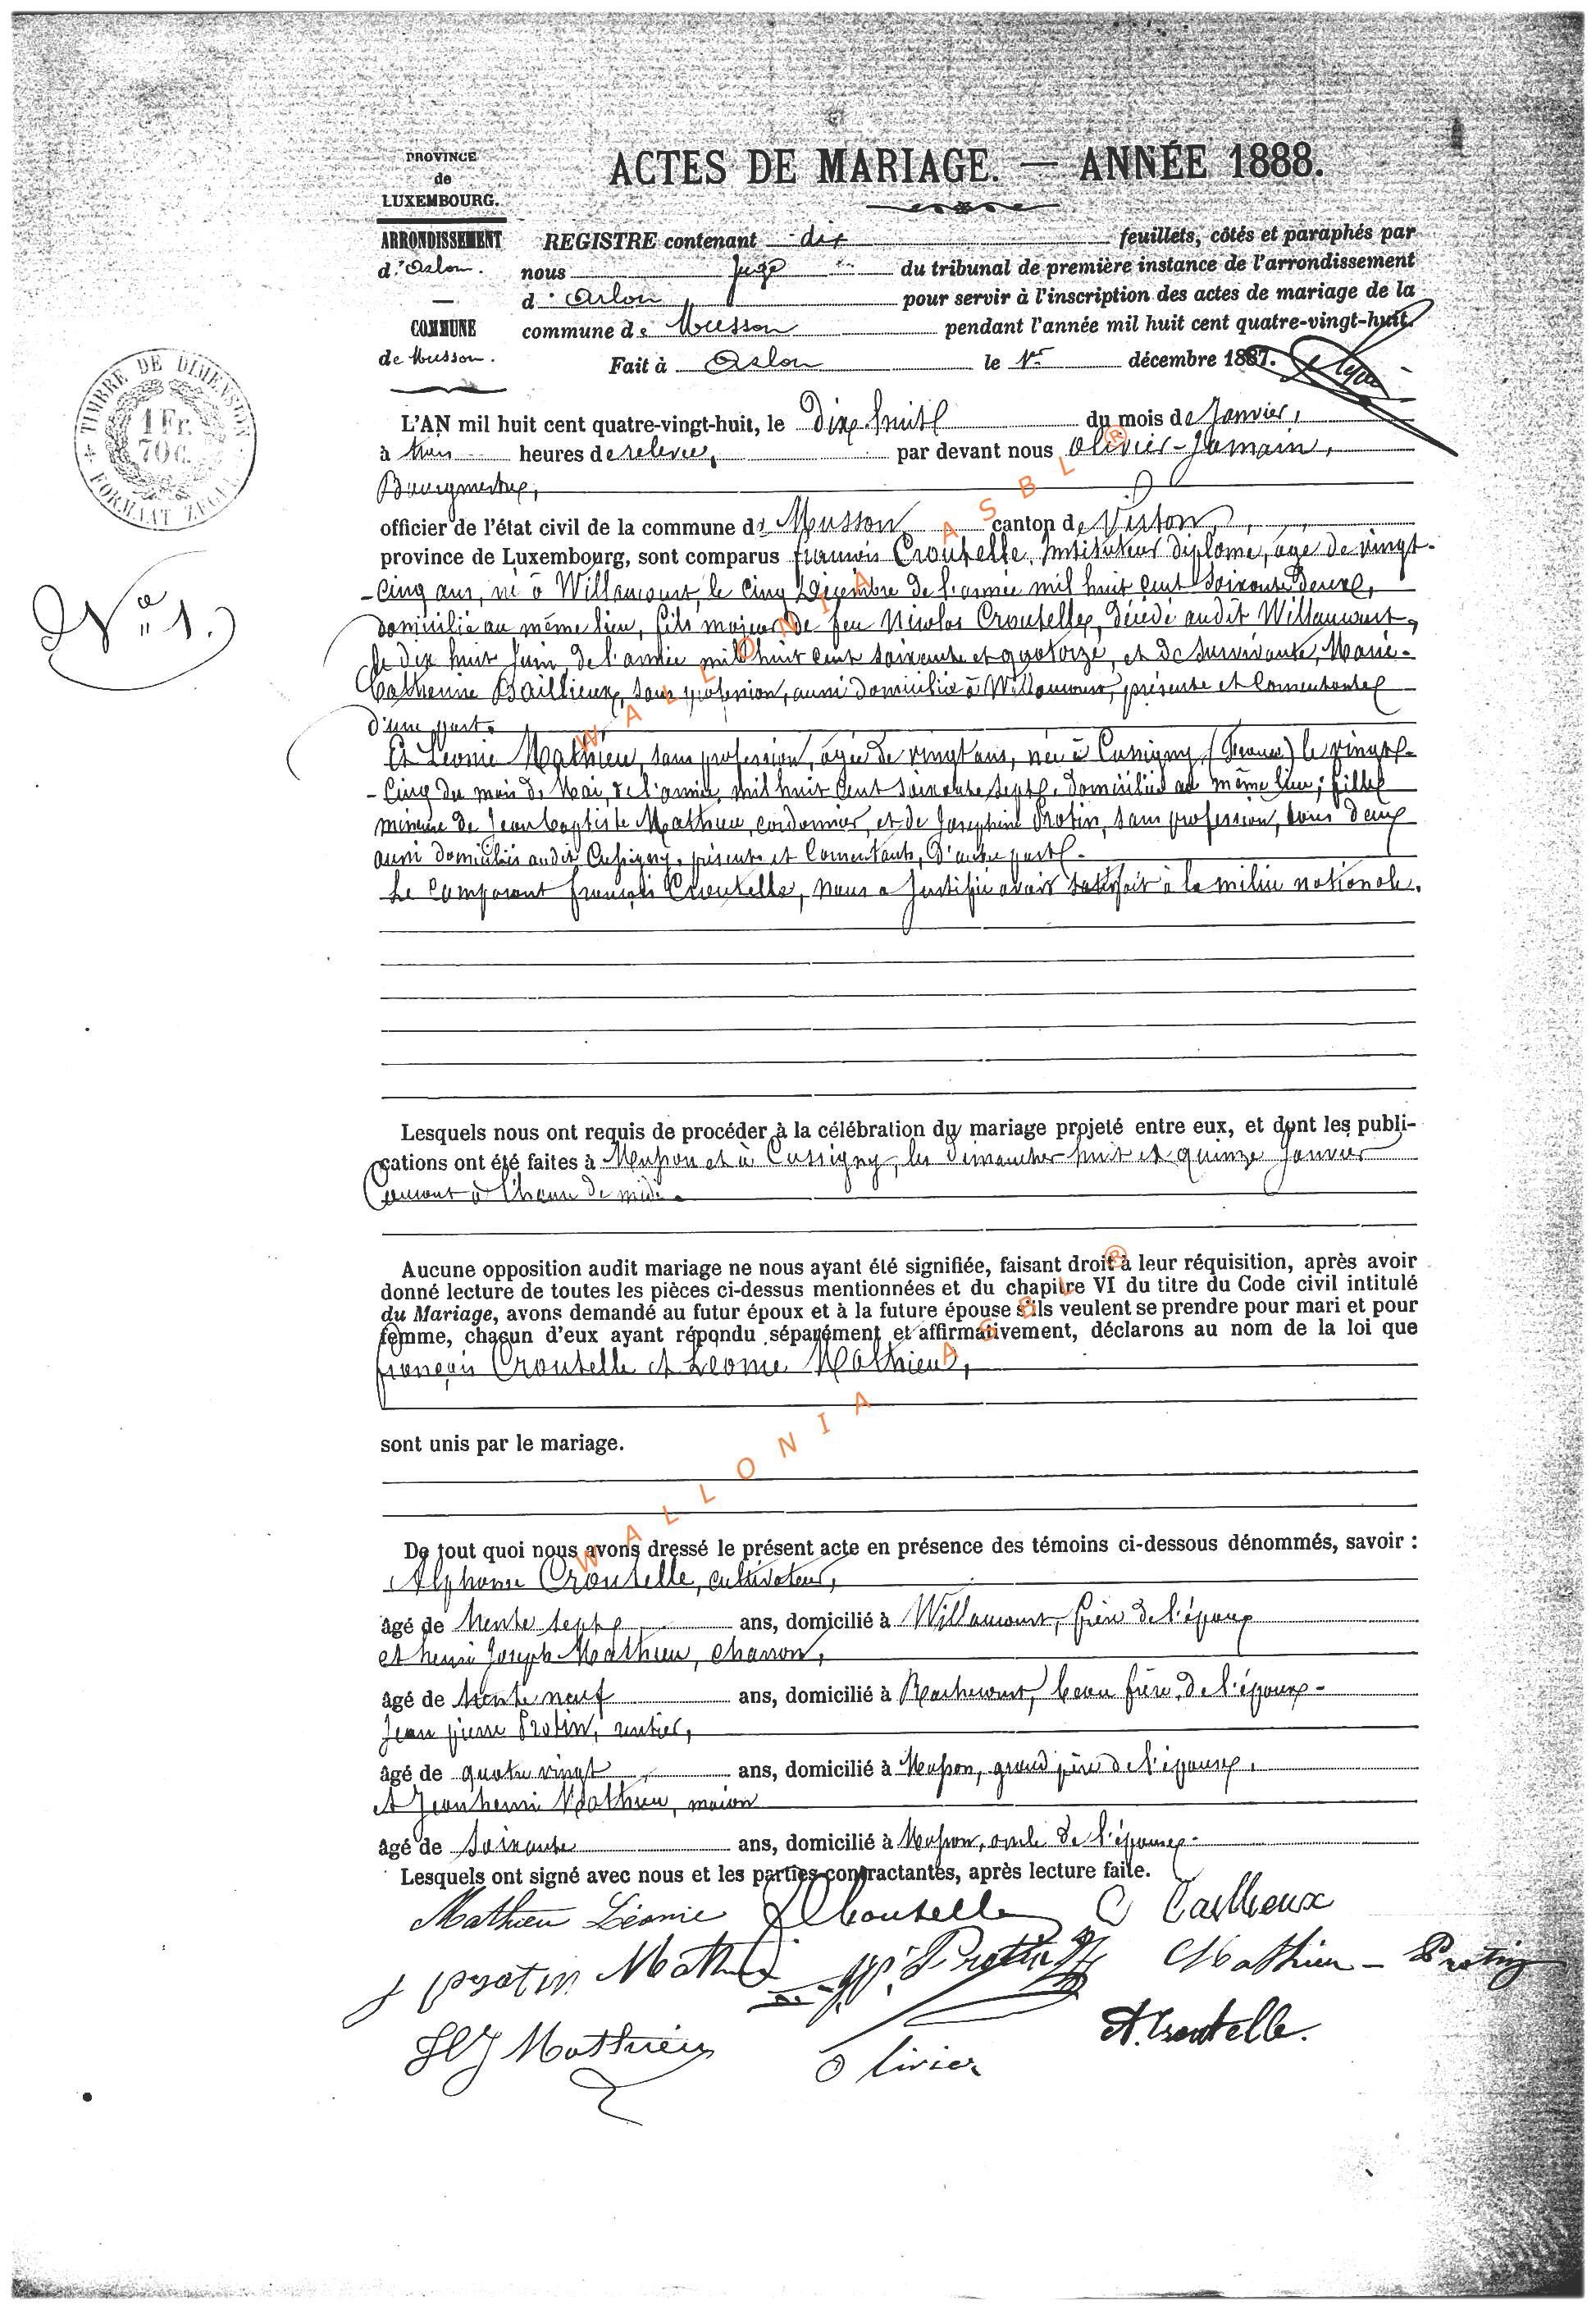 PROVINCE
de
LUXEMBOURG.
ARRONDISSEMENT
d'Arlon.
COMMUNE
de Musson.
ACTES DE MARIAGE. — ANNÉE 1888.
REGISTRE contenant dix feuillets, côtés et paraphés par
nous Juge du tribunal de première instance de l'arrondissement
d'Arlon pour servir à l'inscription des actes de mariage de la
commune de Musson pendant l'année mil huit cent quatre-vingt-huit.
Fait à Arlon le 1er décembre 1887.
TIMBRE DE DIMENSION
1 Fr.
70 c.
FORMAAT ZEGEL
N° 1.
L'AN mil huit cent quatre-vingt-huit, le dix huit du mois de Janvier,
à trois heures de relevée, par devant nous Olivier-Jamain,
Bourgmestre,
officier de l'état civil de la commune de Musson canton de Virton,
province de Luxembourg, sont comparus françois Croutelle, Instituteur diplomé, âgé de vingt-
-cinq ans, né à Willancourt, le cinq Décembre de l'année mil huit cent soixante deux,
domicilié au même lieu, fils majeur de feu Nicolas Croutelle, décédé audit Willancourt,
le dix huit Juin de l'année mil huit cent soixante et quatorze, et de survivante, Marie-
Catherine Baillieux, sans profession, aussi domiciliée à Willancourt, présente et consentante
d'une part.
Et Léonie Mathieu, sans profession, âgée de vingt ans, née à Cussigny (France) le vingt-
-cinq du mois de Mai, de l'année mil huit cent soixante sept, domiciliée au même lieu; fille
mineure de Jean baptiste Mathieu, cordonnier, et de Joséphine Protin, sans profession, tous deux
aussi domiciliés audit Cussigny, présents et consentants, d'autre part.
Le comparant françois Croutelle, nous a justifié avoir satisfait à la milice nationale.
Lesquels nous ont requis de procéder à la célébration du mariage projeté entre eux, et dont les publi-
cations ont été faites à Musson et à Cussigny, les dimanches huit et quinze Janvier
courant à l'heure de midi.
Aucune opposition audit mariage ne nous ayant été signifiée, faisant droit à leur réquisition, après avoir
donné lecture de toutes les pièces ci-dessus mentionnées et du chapitre VI du titre du Code civil intitulé
du Mariage, avons demandé au futur époux et à la future épouse s'ils veulent se prendre pour mari et pour
femme, chacun d'eux ayant répondu séparément et affirmativement, déclarons au nom de la loi que
françois Croutelle et Léonie Mathieu,
sont unis par le mariage.
De tout quoi nous avons dressé le présent acte en présence des témoins ci-dessous dénommés, savoir :
Alphonse Croutelle, cultivateur,
âgé de trente sept ans, domicilié à Willancourt, frère de l'époux
et henri Joseph Mathieu, charron,
âgé de trente neuf ans, domicilié à Rachecourt, beau frère de l'époux-
Jean pierre Protin, rentier,
âgé de quatre vingt ans, domicilié à Musson, grand père de l'épouse,
et Jean henri Mathieu, maçon
âgé de soixante ans, domicilié à Musson, oncle de l'épouse.
Lesquels ont signé avec nous et les parties contractantes, après lecture faite.
Mathieu Léonie F Croutelle C Baillieux
J protin Mathieu J.P. Protin Mathieu - Protin
H J Mathieu Olivier A. Croutelle.
WALLONIA ASBL ®
WALLONIA ASBL ®